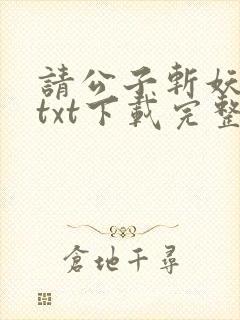 請公子斬妖
txt下載完整
倉地千尋